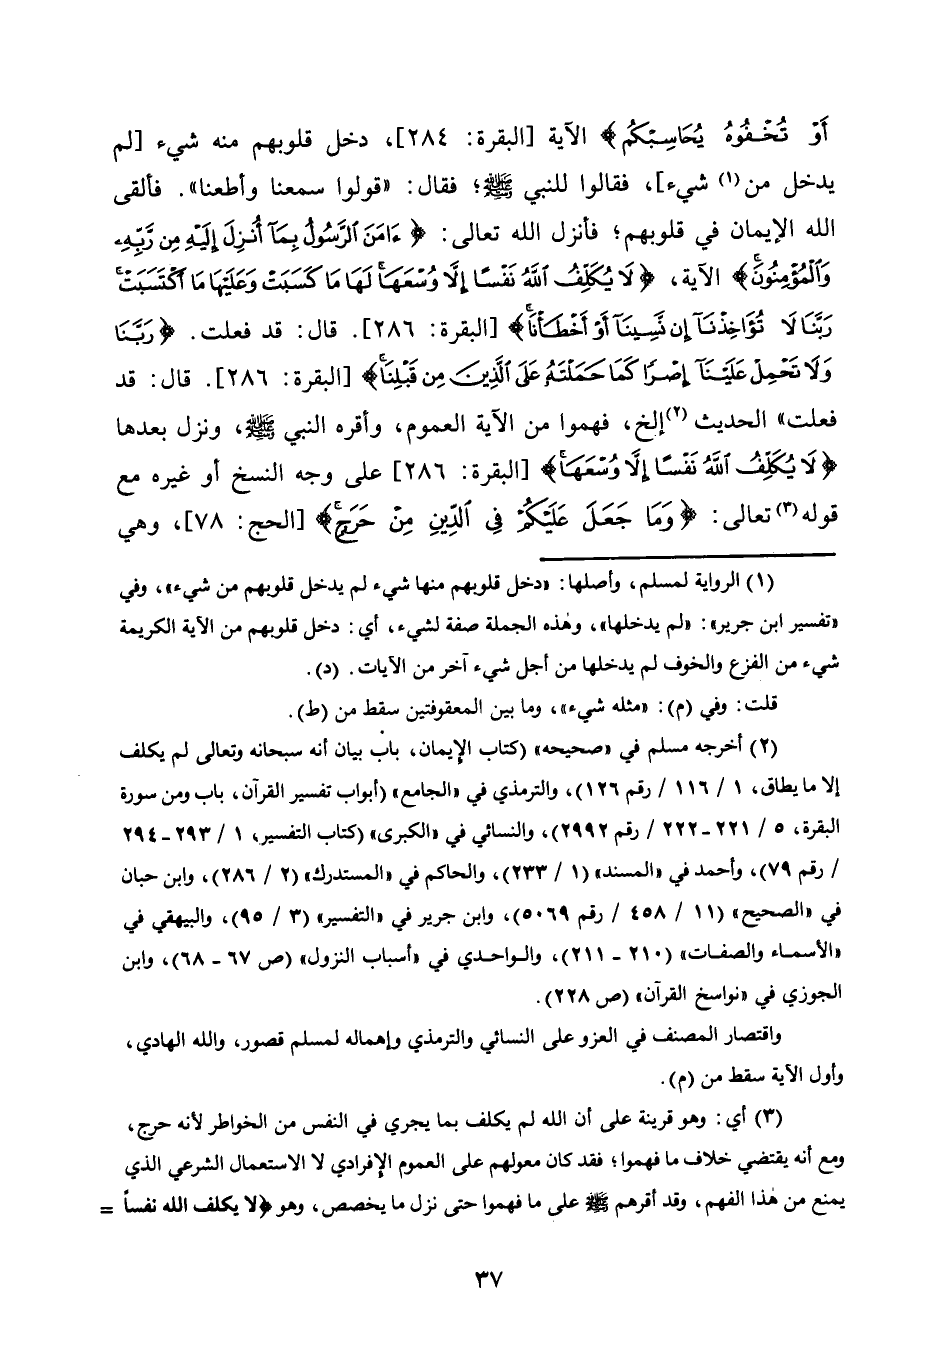 أَوْ تُخْفُوهُ يُحَاسِبْكُم﴾ الآية [البقرة: ٢٨٤]، دخل قلوبهم منه شيء [لم
يدخل من(١) شيء]، فقالوا للنبي ﷺ؛ فقال: «قولوا سمعنا وأطعنا». فألقى
الله الإيمان في قلوبهم؛ فأنزل الله تعالى: ﴿ءَامَنَ ٱلرَّسُولُ بِمَآ أُنزِلَ إِلَيْهِ مِن رَّبِّهِۦ
وَٱلْمُؤْمِنُونَۚ﴾ الآية، ﴿لَا يُكَلِّفُ ٱللَّهُ نَفْسًا إِلَّا وُسْعَهَاۚ لَهَا مَا كَسَبَتْ وَعَلَيْهَا مَا ٱكْتَسَبَتْۗ
رَبَّنَا لَا تُؤَاخِذْنَآ إِن نَّسِينَآ أَوْ أَخْطَأْنَاۚ﴾ [البقرة: ٢٨٦]. قال: قد فعلت. ﴿رَبَّنَا
وَلَا تَحْمِلْ عَلَيْنَآ إِصْرًا كَمَا حَمَلْتَهُۥ عَلَى ٱلَّذِينَ مِن قَبْلِنَاۚ﴾ [البقرة: ٢٨٦]. قال: قد
فعلت» الحديث(٢) إلخ، فهموا من الآية العموم، وأقره النبي ﷺ، ونزل بعدها
﴿لَا يُكَلِّفُ ٱللَّهُ نَفْسًا إِلَّا وُسْعَهَاۚ﴾ [البقرة: ٢٨٦] على وجه النسخ أو غيره مع
قوله(٣) تعالى: ﴿وَمَا جَعَلَ عَلَيْكُمْ فِى ٱلدِّينِ مِنْ حَرَجٍۚ﴾ [الحج: ٧٨]، وهي
(١) الرواية لمسلم، وأصلها: «دخل قلوبهم منها شيء لم يدخل قلوبهم من شيء»، وفي
«تفسير ابن جرير»: «لم يدخلها»، وهٰذه الجملة صفة لشيء، أي: دخل قلوبهم من الآية الكريمة
شيء من الفزع والخوف لم يدخلها من أجل شيء آخر من الآيات. (د).
قلت: وفي (م): «مثله شيء»، وما بين المعقوفتين سقط من (ط).
(٢) أخرجه مسلم في «صحيحه» (كتاب الإيمان، باب بيان أنه سبحانه وتعالى لم يكلف
إلا ما يطاق، ١ / ١١٦ / رقم ١٢٦)، والترمذي في «الجامع» (أبواب تفسير القرآن، باب ومن سورة
البقرة، ٥ / ٢٢١ - ٢٢٢ / رقم ٢٩٩٢)، والنسائي في «الكبرى» (كتاب التفسير، ١ / ٢٩٣ - ٢٩٤
/ رقم ٧٩)، وأحمد في «المسند» (١ / ٢٣٣)، والحاكم في «المستدرك» (٢ / ٢٨٦)، وابن حبان
في «الصحيح» (١١ / ٤٥٨ / رقم ٥٠٦٩)، وابن جرير في «التفسير» (٣ / ٩٥)، والبيهقي في
«الأسماء والصفات» (٢١٠ - ٢١١)، والواحدي في «أسباب النزول» (ص ٦٧ - ٦٨)، وابن
الجوزي في «نواسخ القرآن» (ص ٢٢٨).
واقتصار المصنف في العزو على النسائي والترمذي وإهماله لمسلم قصور، والله الهادي،
وأول الآية سقط من (م).
(٣) أي: وهو قرينة على أن الله لم يكلف بما يجري في النفس من الخواطر لأنه حرج،
ومع أنه يقتضي خلاف ما فهموا؛ فقد كان معولهم على العموم الإفرادي لا الاستعمال الشرعي الذي
يمنع من هٰذا الفهم، وقد أقرهم ﷺ على ما فهموا حتى نزل ما يخصص، وهو ﴿لا يكلف الله نفساً =
٣٧